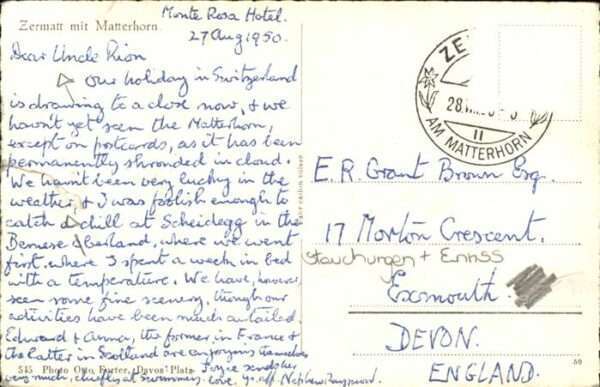 Zermatt mit Matterhorn.
Monte Rosa Hotel.
27 Aug 1950.
Dear Uncle
Our holiday in Switzerland
is drawing to a close now, & we
havn't yet seen the Matterhorn,
except on postcards, as it has been
permanently shrouded in cloud.
We havn't been very lucky in the
weather, & I was foolish enough to
catch a chill at Scheidegg in the
Bernese Oberland, where we went
first, where I spent a week in bed
with a temperature. We have, however,
seen some fine scenery, though our
activities have been much curtailed.
Edward & Anna, the former in France &
the latter in Scotland are enjoying themselves
very much, chiefly at swimming. Love. yr. aff. Nephew
Joyce sends her
545 Photo Otto Furter, "Davos" Platz
ZE
28.
11
AM MATTERHORN
E. R. Grant Brown Esq.
17 Morton Crescent.
Stauchungen +
Exmouth.
DEVON.
ENGLAND.
50